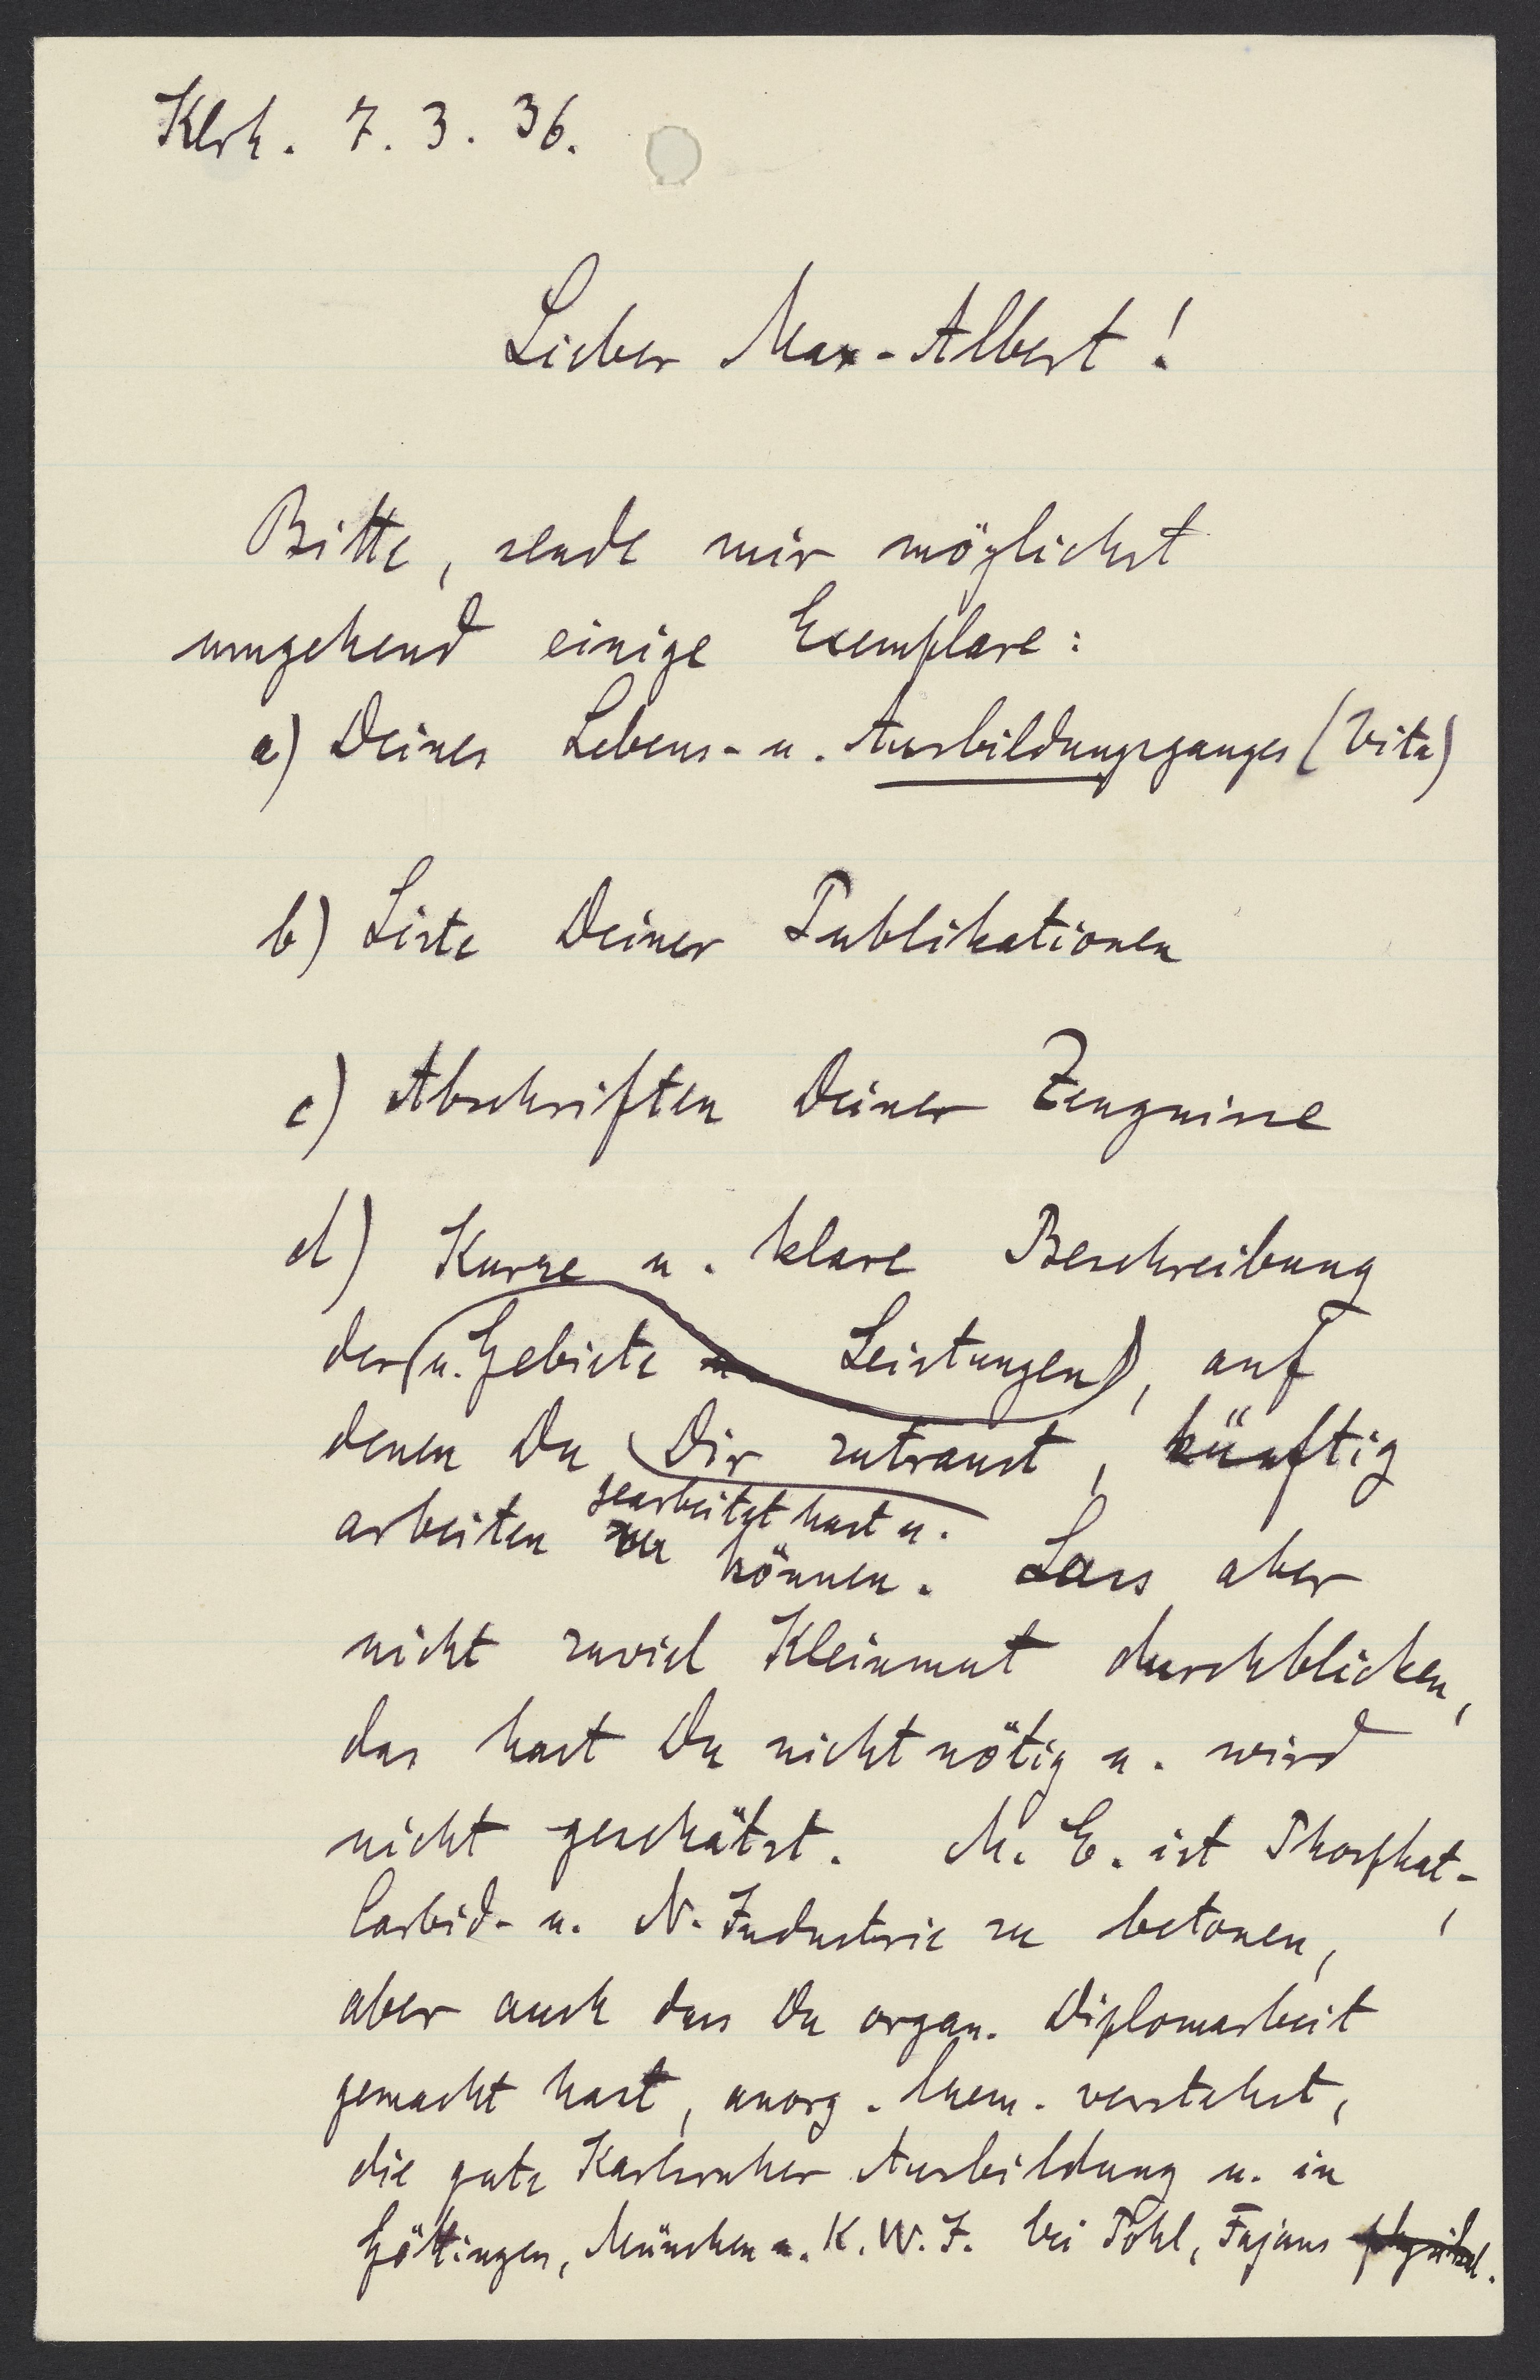 Klrh. 7. 3. 36.
Lieber Max-Albert!
Bitte, sende mir möglichst
umgehend einige Exemplare:
a) Deines Lebens- u. Ausbildungsganges (Vita)
b) Liste Deiner Publikationen
c) Abschriften Deiner Zeugnisse
d) Kurze u. klare Beschreibung
der (u. Gebiete Leistungen), auf
denen Du Dir zutraust, künftig
gearbeitet hast u.
arbeiten zu können. Lass aber
nicht zuviel Kleinmut durchblicken,
das hast Du nicht nötig u. wird
nicht geschätzt. M. E. ist Phosphat-,
Carbid- u. N-Industrie zu betonen,
aber auch dass Du organ. Diplomarbeit
gemacht hast, anorg. Chem. verstehst,
die gute Karlsruher Ausbildung u. in
Göttingen, München u. K. W. I. bei Pohl, Fajans